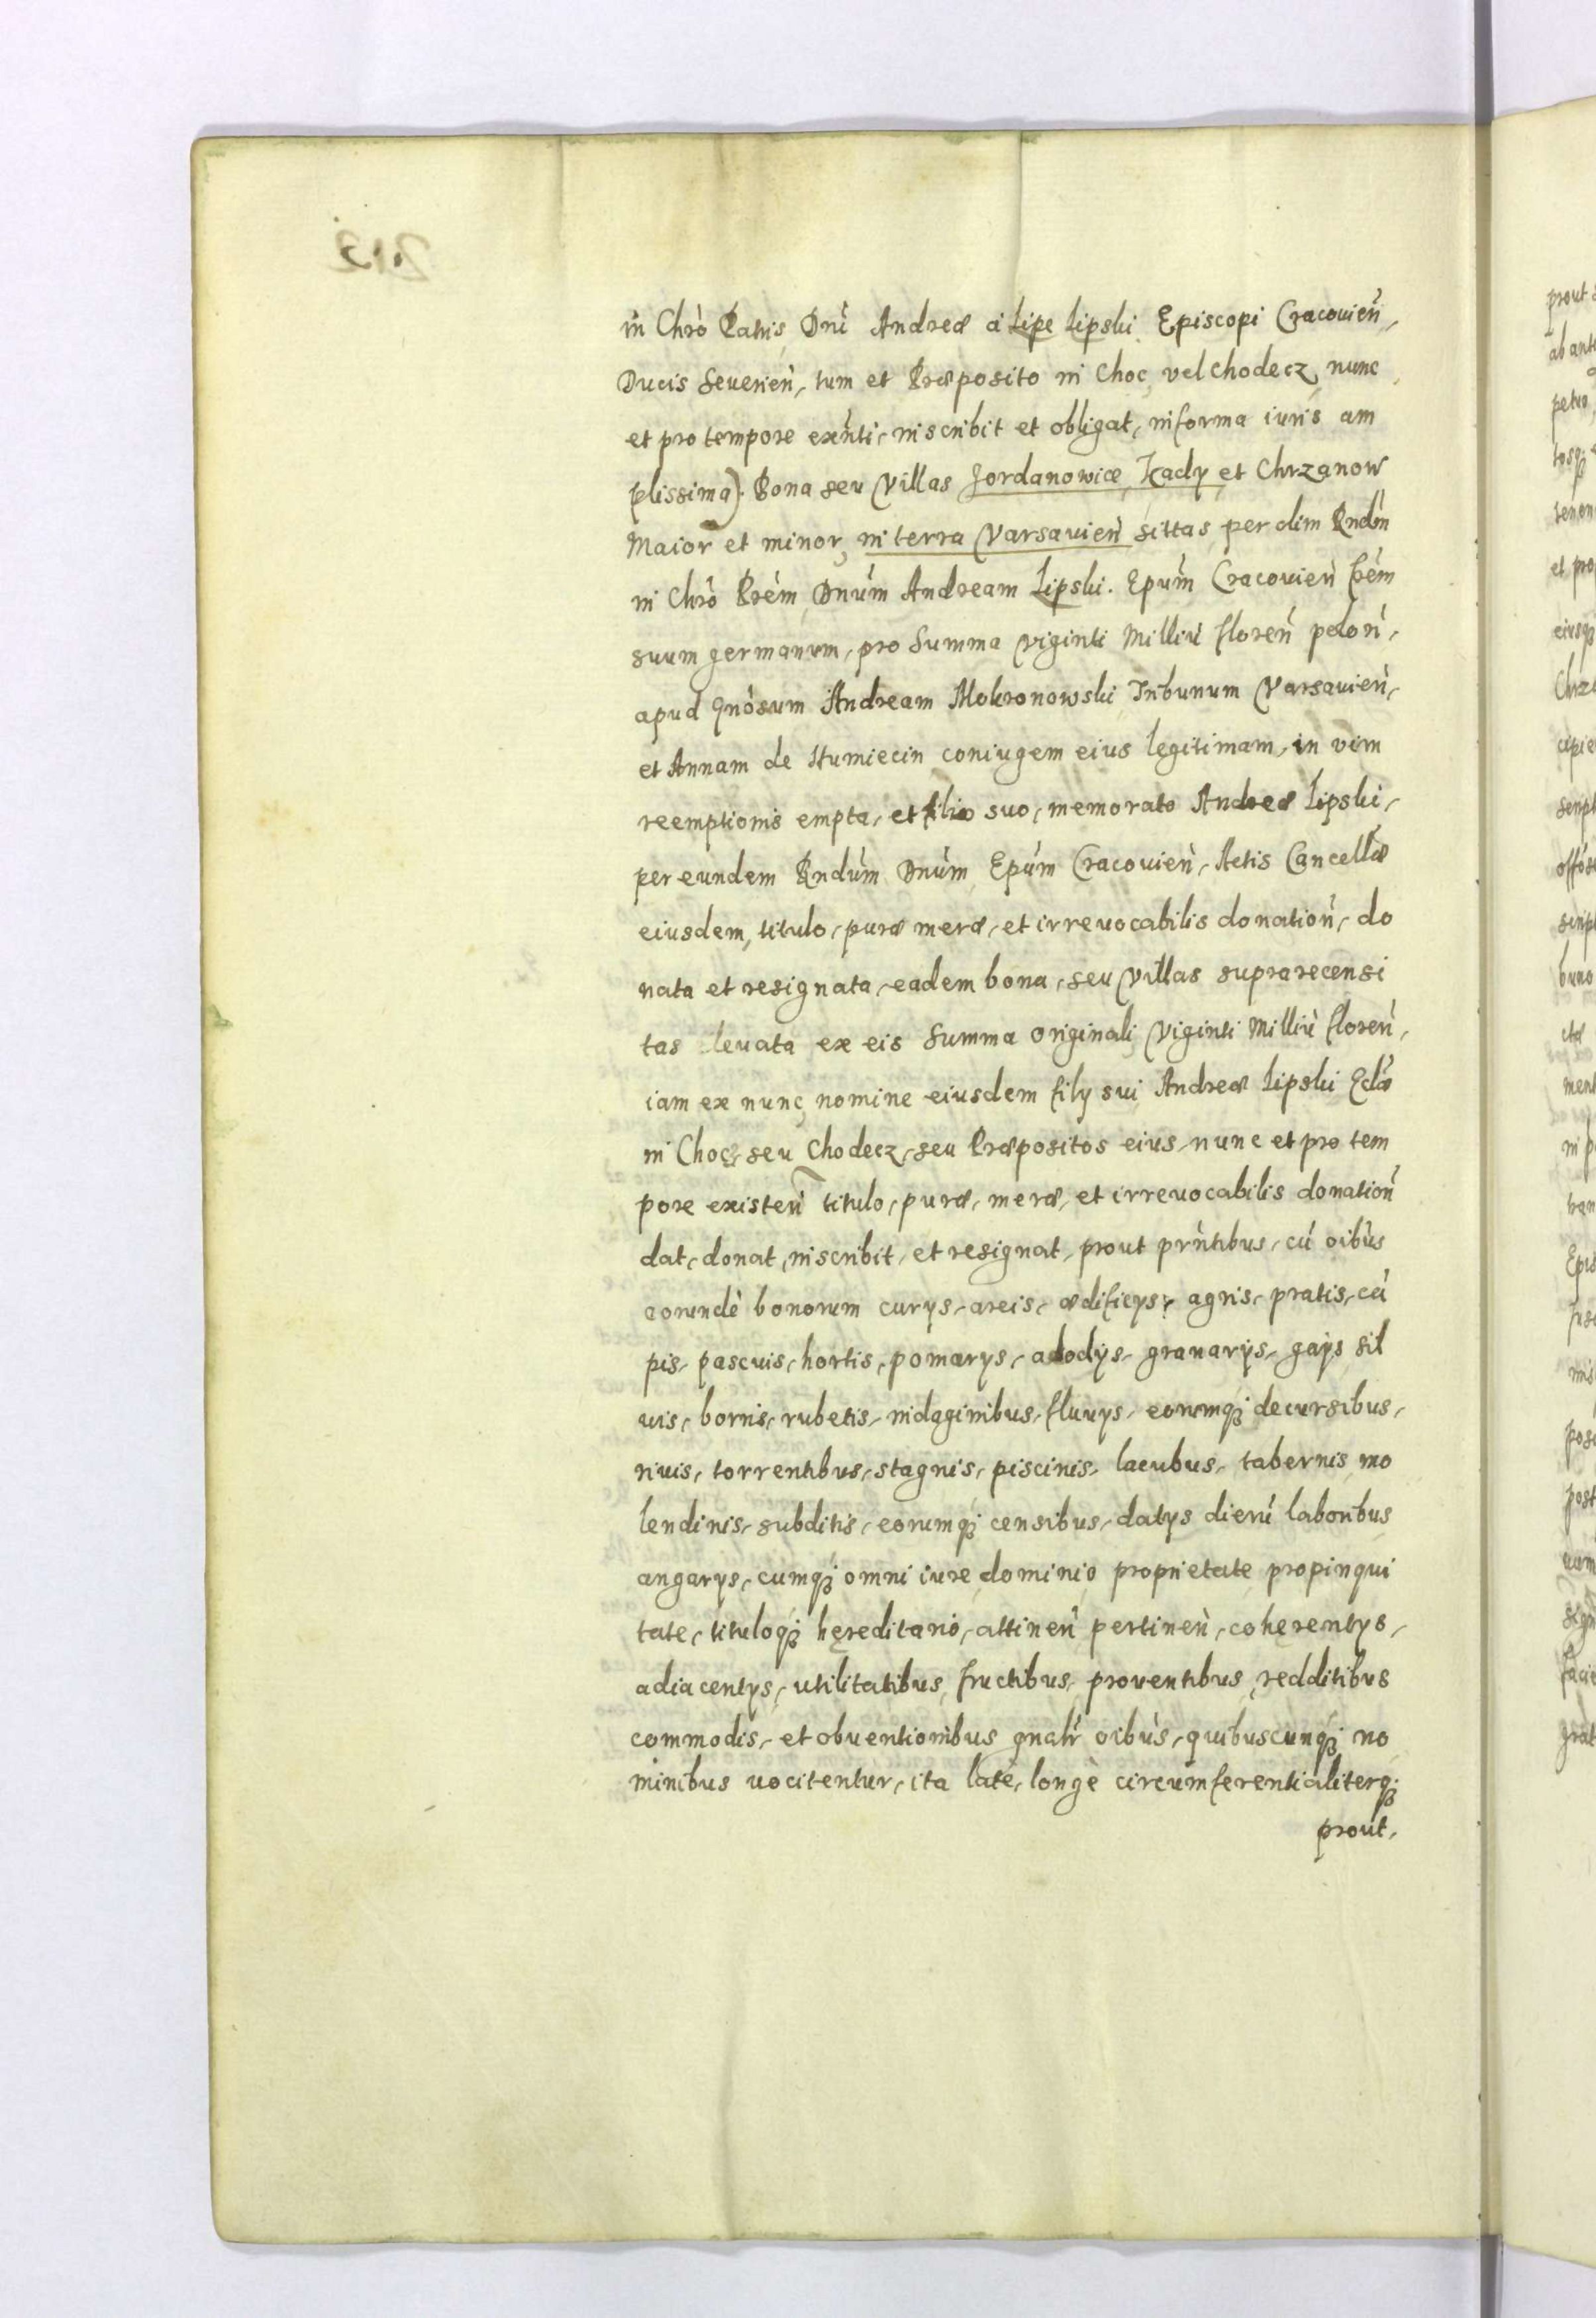 in Chrò Patris Dni Andreæ à Lipe Lipski Episcopi Cracovien,
Ducis Severien, tum et Præposito in Choc, vel Chodecz nunc
et pro tempore exnti, inscribit et obligat, in forma iuris am
plissima). Bona seu Villas Jordanowice, Kady et Chrzanow
Maior et minor, in terra Varsavien sittas per olim Rndm
in Chrò Prem Dnum Andream Lipski. Epum Cracovien frem
suum germanum, pro Summa viginti Milliu floren polon,
apud Gnosum Andream Mokronowski Tribunum Varsavien,
et Annam de Humiecin coniugem eius legitimam, in vim
reemptionis empta, et filio suo, memorato Andreæ Lipski,
per eundem Rndum Dnum Epum Cracovien, Actis Cancellæ
eiusdem, titulo, puræ meræ, et irrevocabilis donation, do
nata et resignata, eadem bona, seu Villas suprarecensi
tas levata ex eis Summa originali Viginti Milliu floren,
iam ex nunc, nomine eiusdem fily sui Andreæ Lipski Eclæ
in Choc, seu Chodecz, seu Præpositos eius, nunc et pro tem
pore existen titulo, puræ, meræ, et irrevocabilis donation
dat, donat, inscribit, et resignat, prout prntibus, cu oibus
eorunde bonorum curys, areis, ædificys, agris, pratis, cā
pis, pascuis, hortis, pomarys, alodys, granarys, gays sil
uis, borris, rubetis, indaginibus, fluuys, eorumq; decursibus,
riuis, torrentibus, stagnis, piscinis, lacubus, tabernis, mo
lendinis, subditis, eorumq; censibus, datys dieru laboribus
angarys, cumq; omni iure dominio proprietate propinqui
tate, tituloq; hęreditario, attinen pertinen, cohęrentys,
adiacentys, utilitatibus, fructibus, proventibus, redditibus
commodis, et obventionibus gnalr oibus, quibuscunq; no
minibus uocitentur, ita latè, longè circumferentialiterq;
prout,